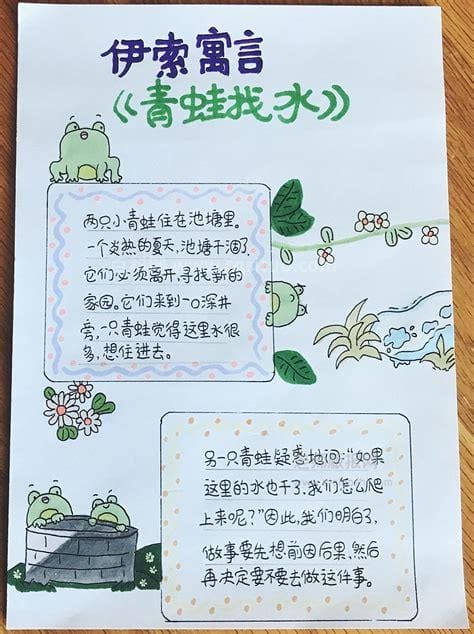 伊索寓言
《青蛙找水》
两只小青蛙住在池塘里。
一个炎热的夏天,池塘干涸了,
它们必须离开,寻找新的
家园。它们来到一口深井
旁,一只青蛙觉得这里水很
多,想住进去。
另一只青蛙疑惑地问:"如果
这里的水也干了,我们怎么爬
上来呢?"因此,我们明白了,
做事要先想前因后果,然后
再决定要不要去做这件事。